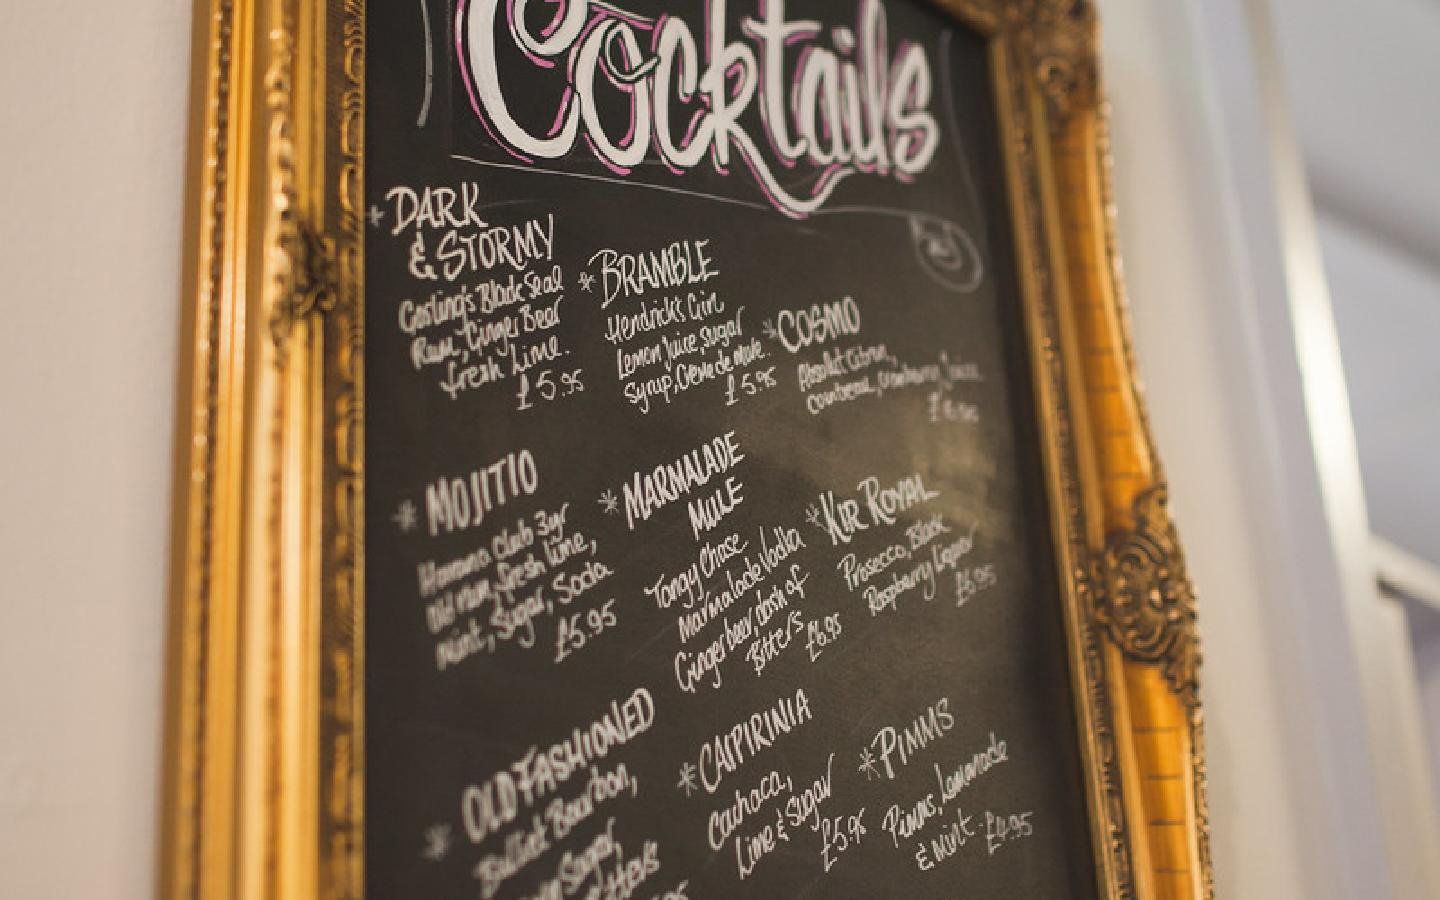 Cocktails
* DARK
& STORMY
Gosling's Black Seal
Rum, Ginger Beer
fresh Lime.
£5.95
* BRAMBLE
Hendrick's Gin
Lemon Juice, Sugar
Syrup, Creme de Mure.
£5.95
* COSMO
Absolut Citron,
Cointreau, Cranberry Juice
* MOJITIO
Havana Club 3yr
Old rum, fresh lime,
mint, Sugar, Soda
£5.95
* MARMALADE
MULE
Tangy Chase
Marmalade Vodka
Ginger beer, dash of
Bitters £6.95
* KIR ROYAL
Prosecco, Black
Raspberry Liquor
£6.95
* OLD FASHIONED
Bulliet Bourbon,
Sugar,
* CAIPIRINIA
Cachaca,
Lime & Sugar
£5.95
* PIMMS
Pimms, Lemonade
& Mint. £4.95